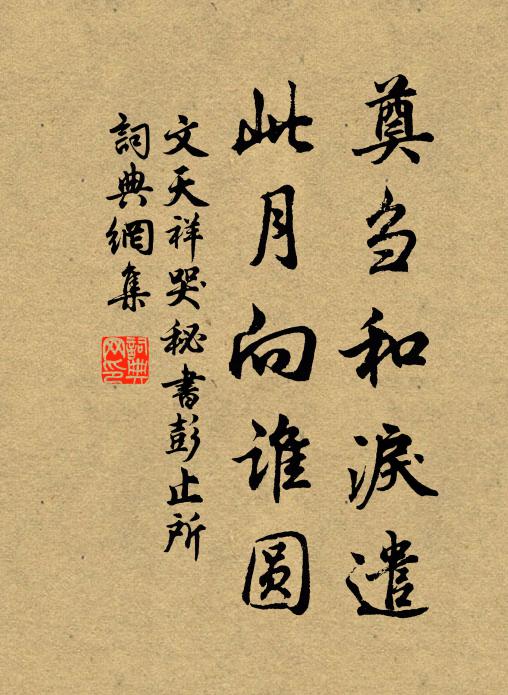 奠刍和淚遣
此月向誰圆
文天祥哭秘書彭止所
詞典網集
詞典网印